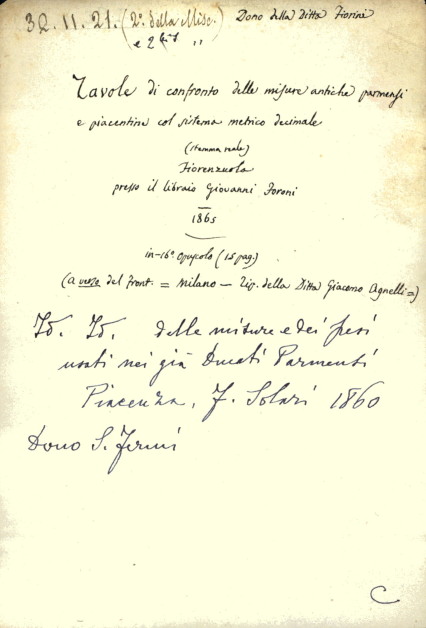 32.11.21. (2º. della Misc.) Dono della Ditta Fiorini
e 2 bis "
Tavole di confronto delle misure antiche parmensi
e piacentine col sistema metrico decimale
(stemma reale)
Fiorenzuola
presso il libraio Giovanni Foroni
1865
in-16º opuscolo (15 pag.)
(a verso del front. = Milano — Tip. della Ditta Giacomo Agnelli =)
Id. Id. delle misure e dei pesi
usati nei già Ducati Parmensi
Piacenza, F. Solari 1860
Dono S. Fermi
C